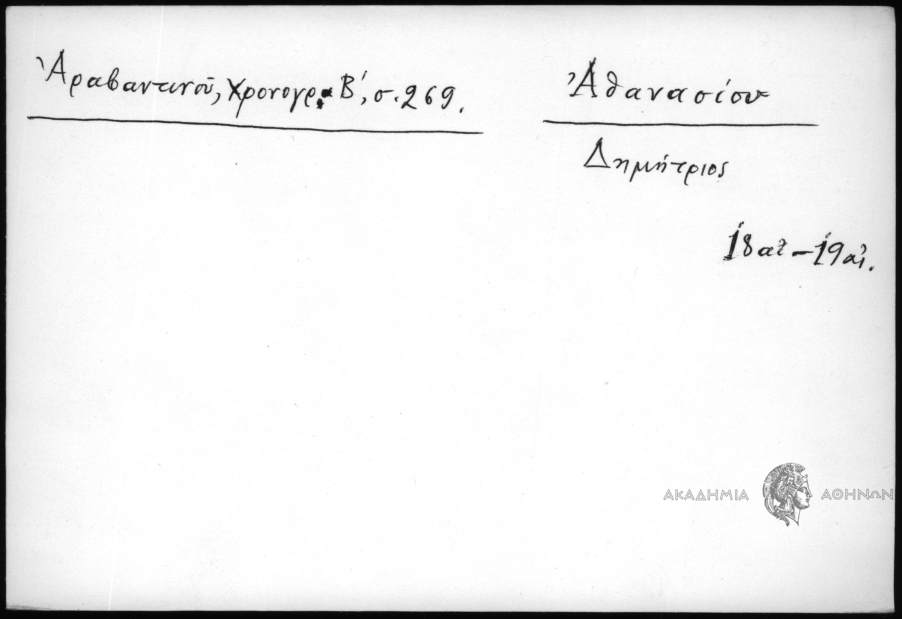 Ἀραβαντινοῦ, Χρονογρ. Β΄, σ. 269.
Ἀθανασίου
Δημήτριος
18 αἰ – 19 αἰ.
ΑΚΑΔΗΜΙΑ ΑΘΗΝΩΝ